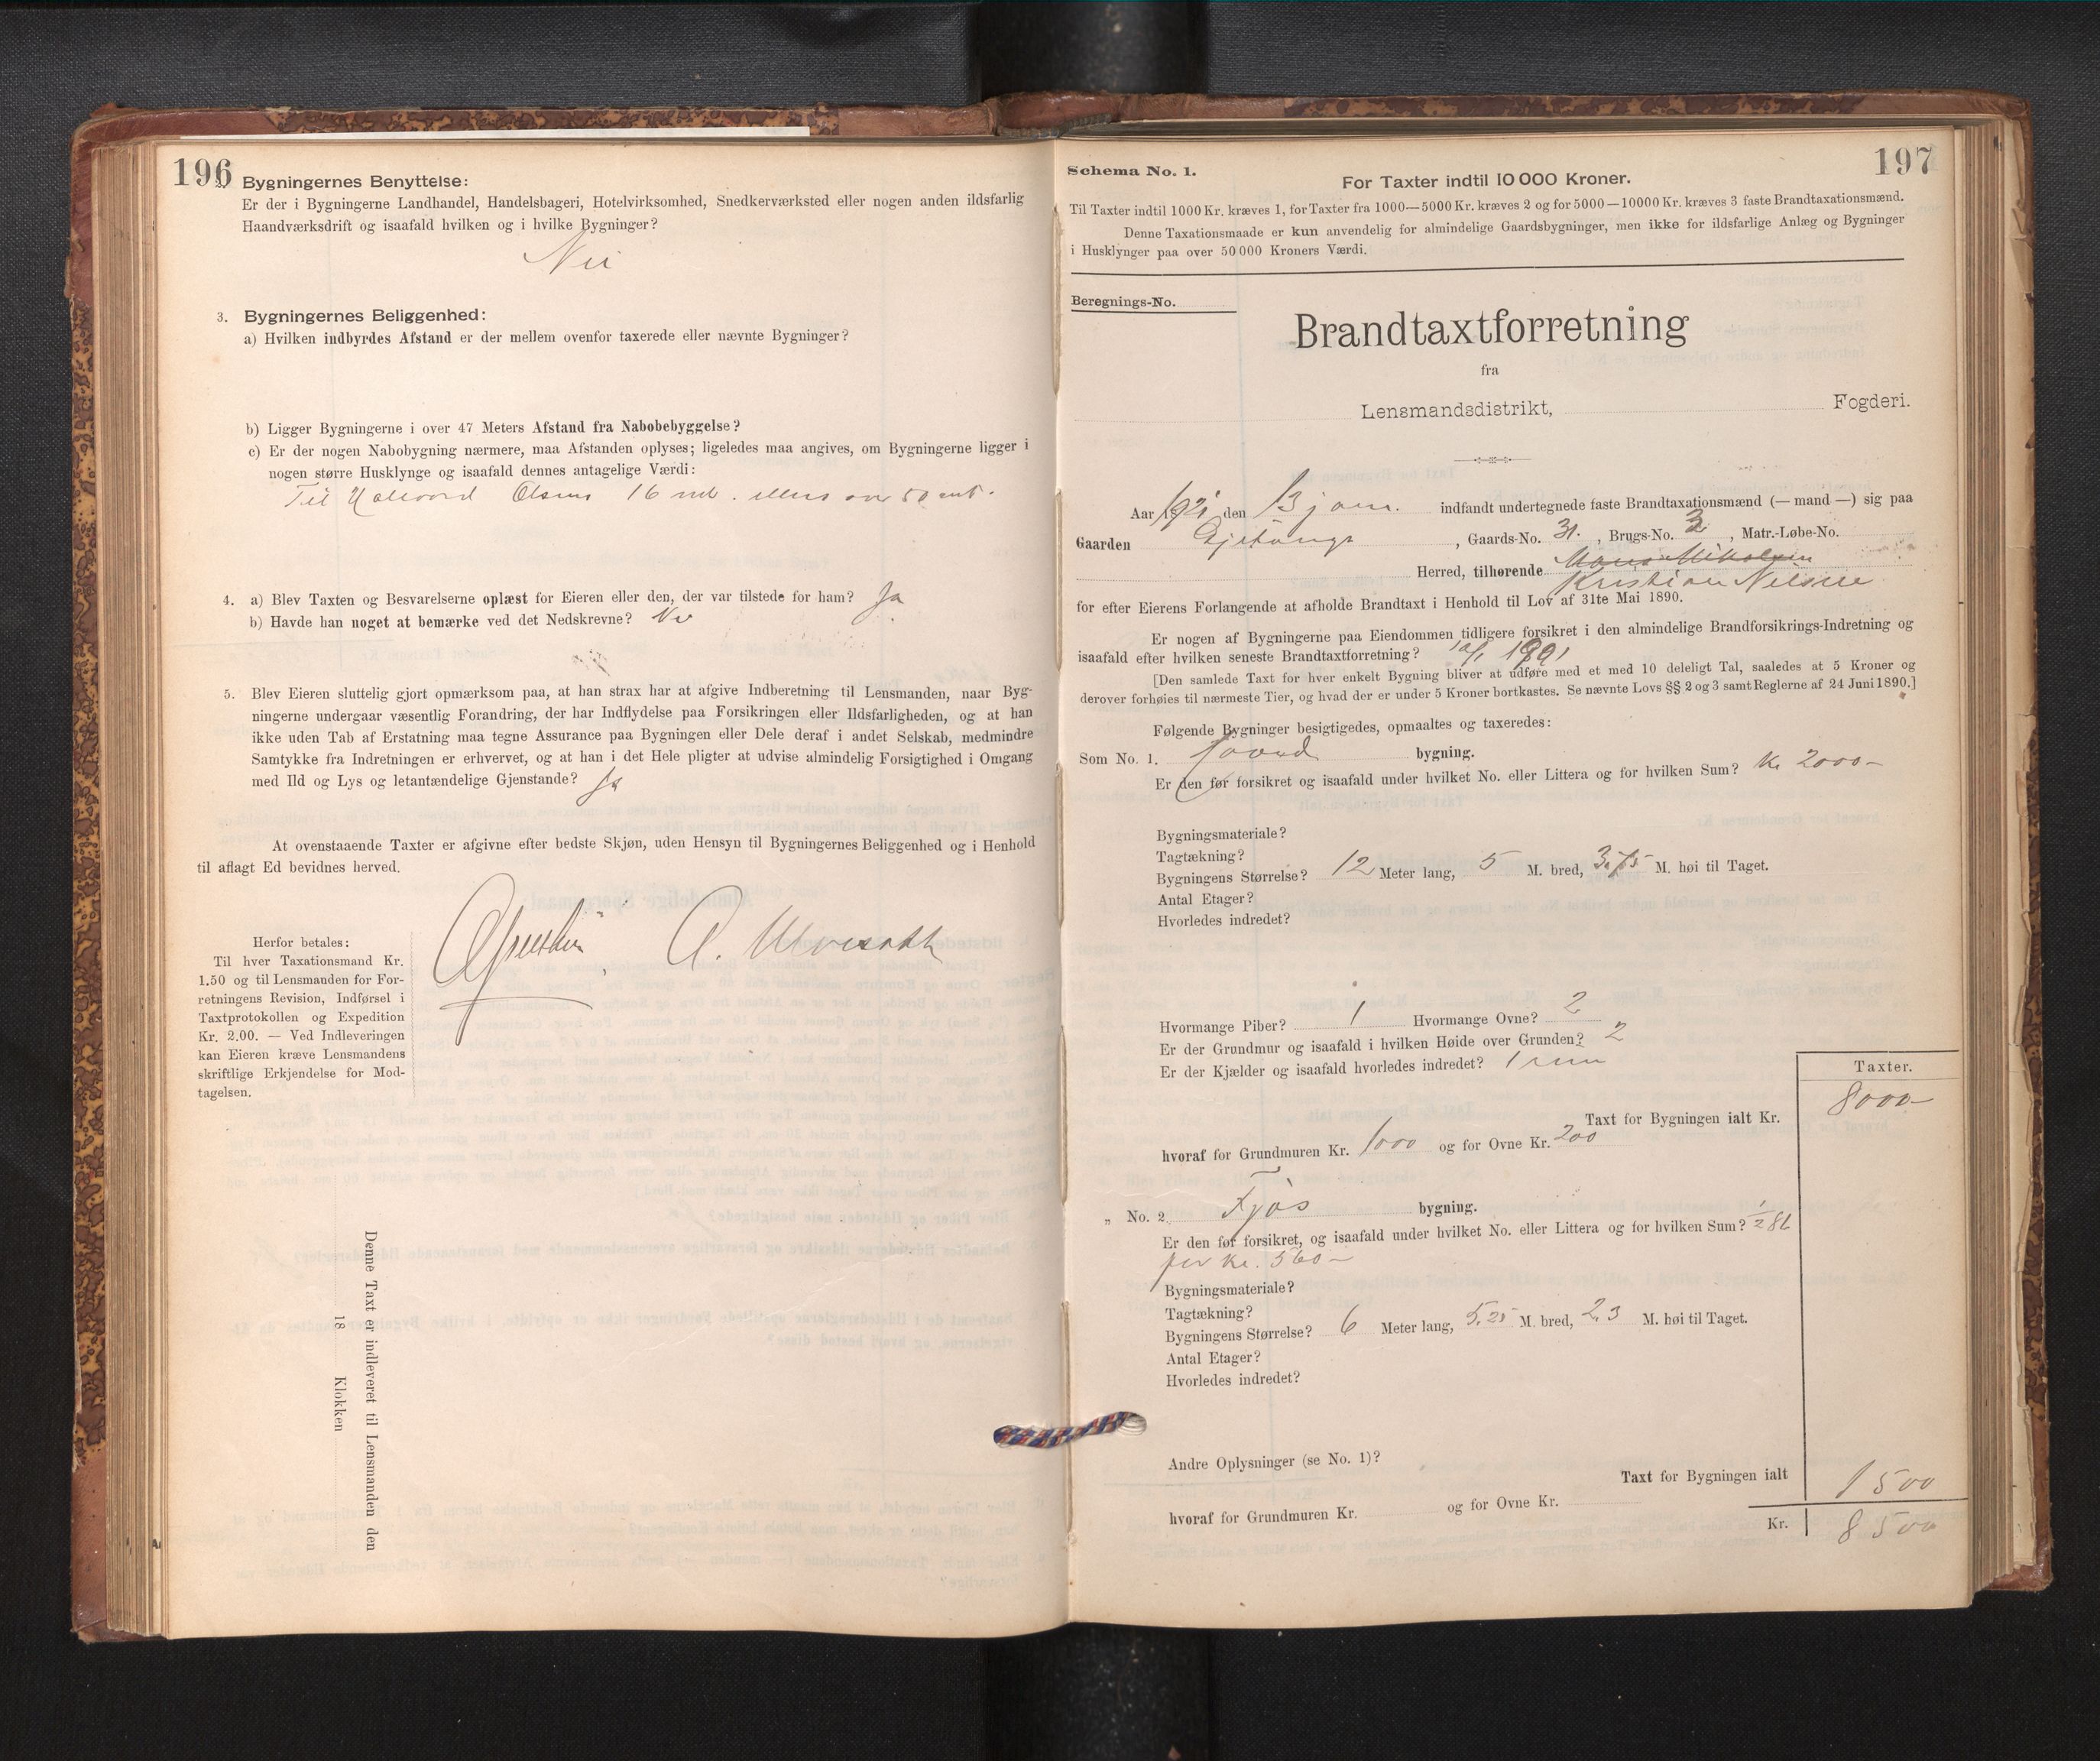 196
2. Bygningernes Benyttelse:
Er der i Bygningerne Landhandel, Handelsbageri, Hotelvirksomhed, Snedkerværksted eller nogen anden ildsfarlig
Haandværksdrift og isaafald hvilken og i hvilke Bygninger?
Nei
3. Bygningernes Beliggenhed:
a) Hvilken indbyrdes Afstand er der mellem ovenfor taxerede eller nævnte Bygninger?
b) Ligger Bygningerne i over 47 Meters Afstand fra Nabobebyggelse?
c) Er der nogen Nabobygning nærmere, maa Afstanden oplyses; ligeledes maa angives, om Bygningerne ligger i
nogen større Husklynge og isaafald dennes antagelige Værdi:
Til Halvord Olsens 16 m. ellers over 50 mt.
4. a) Blev Taxten og Besvarelserne oplæst for Eieren eller den, der var tilstede for ham? Ja
b) Havde han noget at bemærke ved det Nedskrevne? Nei
5. Blev Eieren sluttelig gjort opmærksom paa, at han strax har at afgive Indberetning til Lensmanden, naar Byg-
ningerne undergaar væsentlig Forandring, der har Indflydelse paa Forsikringen eller Ildsfarligheden, og at han
ikke uden Tab af Erstatning maa tegne Assurance paa Bygningen eller Dele deraf i andet Selskab, medmindre
Samtykke fra Indretningen er erhvervet, og at han i det Hele pligter at udvise almindelig Forsigtighed i Omgang
med Ild og Lys og letantændelige Gjenstande? Ja
At ovenstaaende Taxter er afgivne efter bedste Skjøn, uden Hensyn til Bygningernes Beliggenhed og i Henhold
til aflagt Ed bevidnes herved.
Herfor betales:
Til hver Taxationsmand Kr.
1.50 og til Lensmanden for For-
retningens Revision, Indførsel i
Taxtprotokollen og Expedition
Kr. 2.00. — Ved Indleveringen
kan Eieren kræve Lensmandens
skriftlige Erkjendelse for Mod-
tagelsen.
Denne Taxt er indleveret til Lensmanden den
18 Klokken
197
Schema No. 1.
For Taxter indtil 10 000 Kroner.
Til Taxter indtil 1000 Kr. kræves 1, for Taxter fra 1000—5000 Kr. kræves 2 og for 5000—10000 Kr. kræves 3 faste Brandtaxationsmænd.
Denne Taxationsmaade er kun anvendelig for almindelige Gaardsbygninger, men ikke for ildsfarlige Anlæg og Bygninger
i Husklynger paa over 50 000 Kroners Værdi.
Beregnings-No.
Brandtaxtforretning
fra
Lensmandsdistrikt, Fogderi.
Aar 1921 den 13 jan. indfandt undertegnede faste Brandtaxationsmænd (— mand —) sig paa
Gaarden , Gaards-No. 31. , Brugs-No. 3 , Matr.-Løbe-No.
Herred, tilhørende
Kristian Nilsen
for efter Eierens Forlangende at afholde Brandtaxt i Henhold til Lov af 31te Mai 1890.
Er nogen af Bygningerne paa Eiendommen tidligere forsikret i den almindelige Brandforsikrings-Indretning og
isaafald efter hvilken seneste Brandtaxtforretning?
[Den samlede Taxt for hver enkelt Bygning bliver at udføre med et med 10 deleligt Tal, saaledes at 5 Kroner og
derover forhøies til nærmeste Tier, og hvad der er under 5 Kroner bortkastes. Se nævnte Lovs §§ 2 og 3 samt Reglerne af 24 Juni 1890.]
Følgende Bygninger besigtigedes, opmaaltes og taxeredes:
Som No. 1. bygning.
Er den før forsikret og isaafald under hvilket No. eller Littera og for hvilken Sum? Kr 2000-
Bygningsmateriale?
Tagtækning?
Bygningens Størrelse? 12 Meter lang, 5 M. bred, 3.75 M. høi til Taget.
Antal Etager?
Hvorledes indredet?
Hvormange Piber? 1 Hvormange Ovne? 2
Er der Grundmur og isaafald i hvilken Høide over Grunden? 2
Er der Kjælder og isaafald hvorledes indredet? 1 rum
Taxter.
Taxt for Bygningen ialt Kr. 8000-
hvoraf for Grundmuren Kr. 1000 og for Ovne Kr. 200
„ No. 2 Fjøs bygning.
Er den før forsikret, og isaafald under hvilket No. eller Littera og for hvilken Sum?
for Kr. 560-
Bygningsmateriale?
Tagtækning?
Bygningens Størrelse? 6 Meter lang, 5.25 M. bred, 2.3 M. høi til Taget.
Antal Etager?
Hvorledes indredet?
Andre Oplysninger (se No. 1)?
Taxt for Bygningen ialt 1500
hvoraf for Grundmuren Kr. og for Ovne Kr.
Kr. 8500